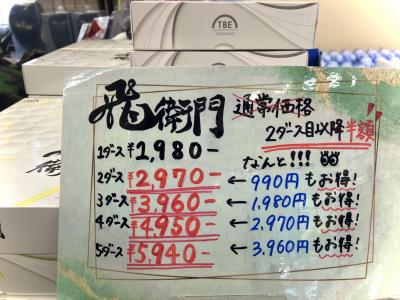 TBE
飛衛門
通常価格
2ダース目以降半額!!
なんと!!!
1ダース ¥1,980-
2ダース ¥2,970- ← 990円もお得!
3ダース ¥3,960- ← 1,980円もお得!
4ダース ¥4,950- ← 2,970円もお得!
5ダース ¥5,940- ← 3,960円もお得!